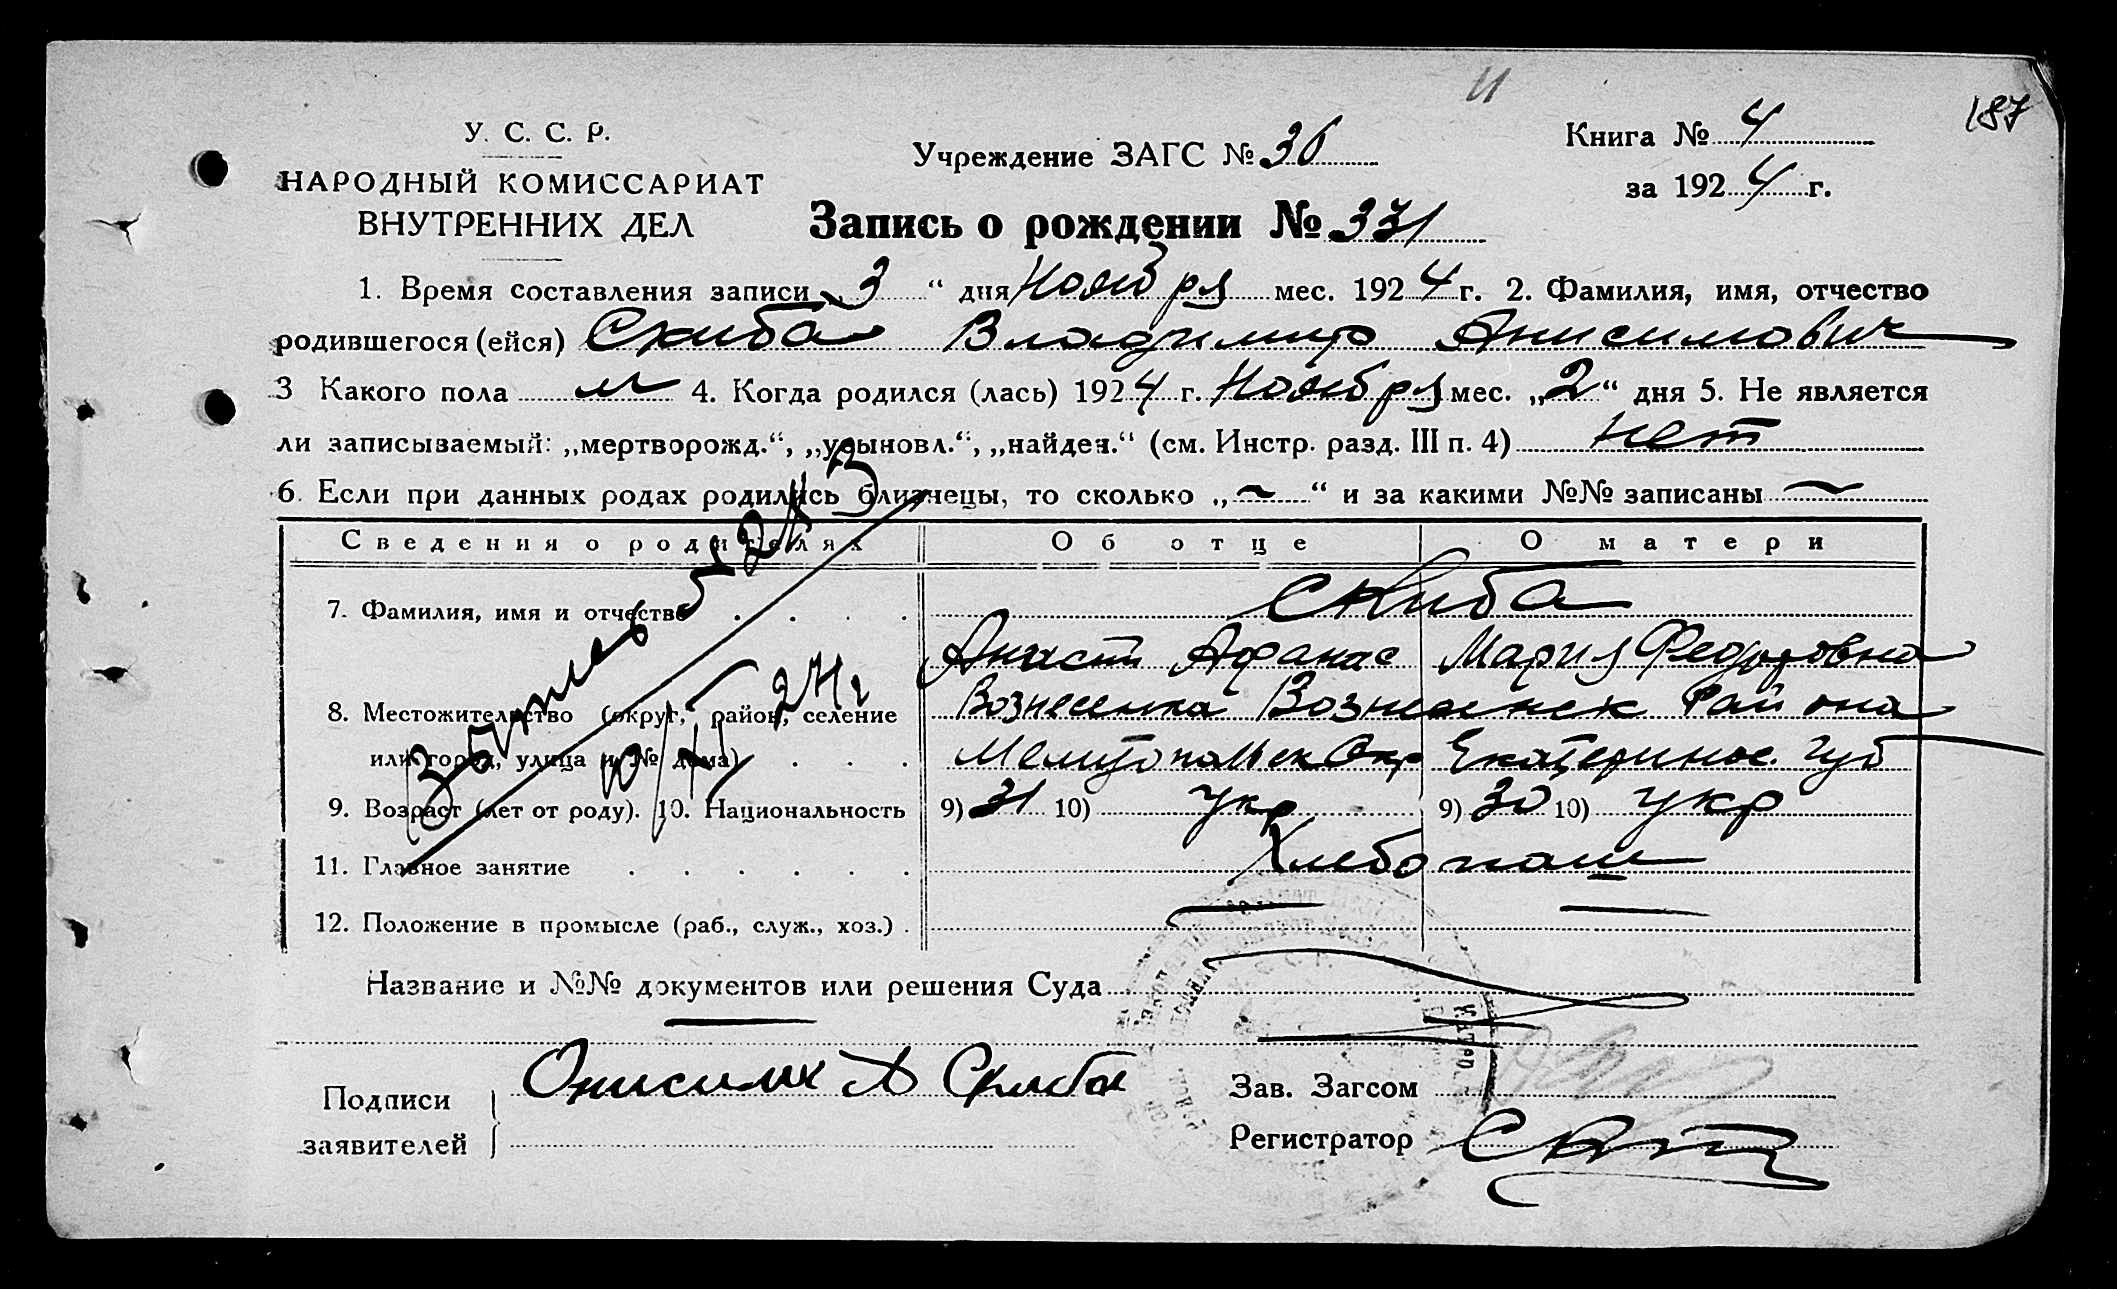 И
187
У. С. С. Р.
НАРОДНЫЙ КОМИССАРИАТ
ВНУТРЕННИХ ДЕЛ
Учреждение ЗАГС № 36
Книга № 4
за 1924 г.
Запись о рождении № 331
1. Время составления записи „3“ дня Ноября мес. 1924 г. 2. Фамилия, имя, отчество
родившегося (ейся) Скиба Владимир Анисимович
3 Какого пола м 4. Когда родился (лась) 1924 г. Ноября мес. „2“ дня 5. Не является
ли записываемый: „мертворожд.“, „усыновл.“, „найден.“ (см. Инстр. разд. III п. 4) нет
6. Если при данных родах родились близнецы, то сколько „~“ и за какими №№ записаны ~
Сведения о родителях Об отце О матери
7. Фамилия, имя и отчество Скиба
Афанас Мария Федоровна
8. Местожительство (округ, район, селение Вознесенка Вознесенск Района
или город, улица и № дома) Мелитопольск Окр Екатеринос. губ
9. Возраст (лет от роду). 10. Национальность 9) 31 10) укр 9) 30 10) укр
11. Главное занятие Хлебопаш
12. Положение в промысле (раб., служ., хоз.) — —
Название и №№ документов или решения Суда
Подписи
заявителей
А Скиба
Зав. Загсом
Регистратор